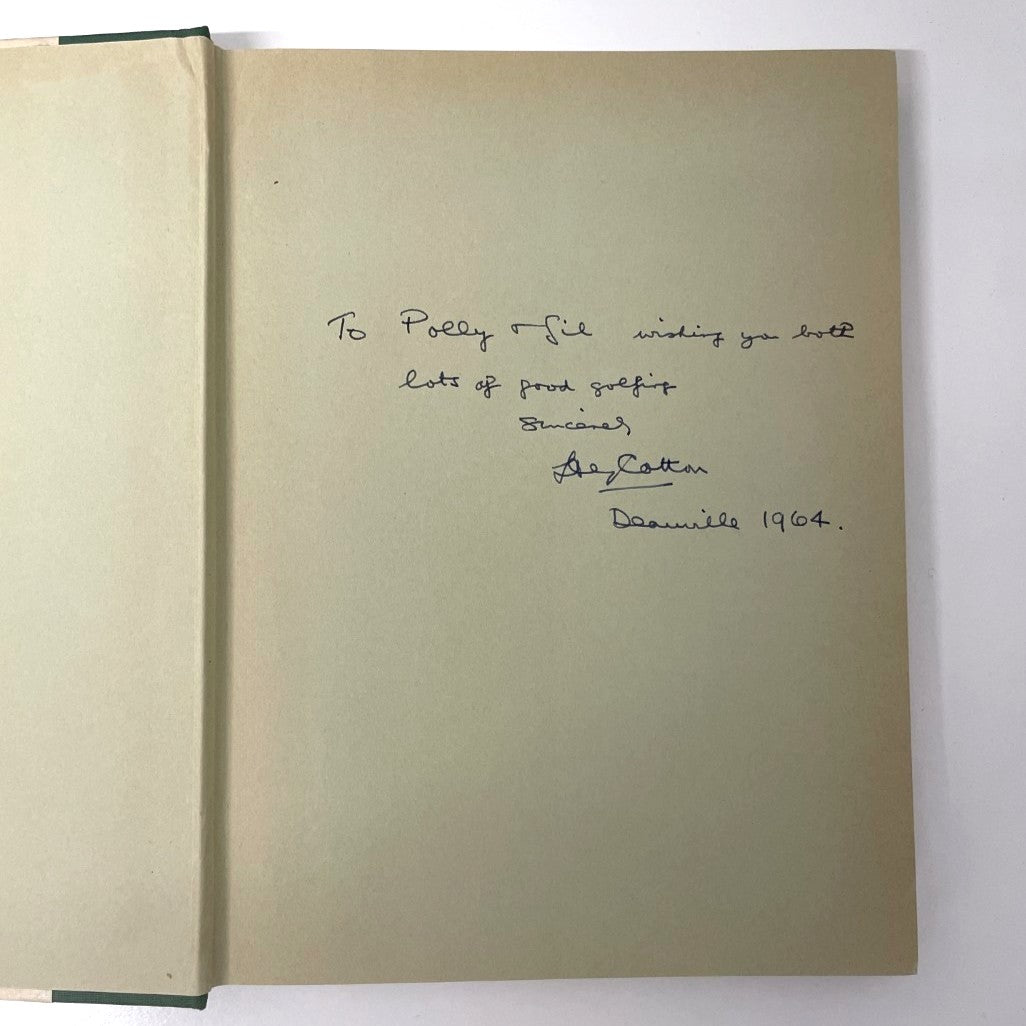 To Polly & Gil wishing you both
lots of good golfing
Sincerely
Henry Cotton
Deauville 1964.